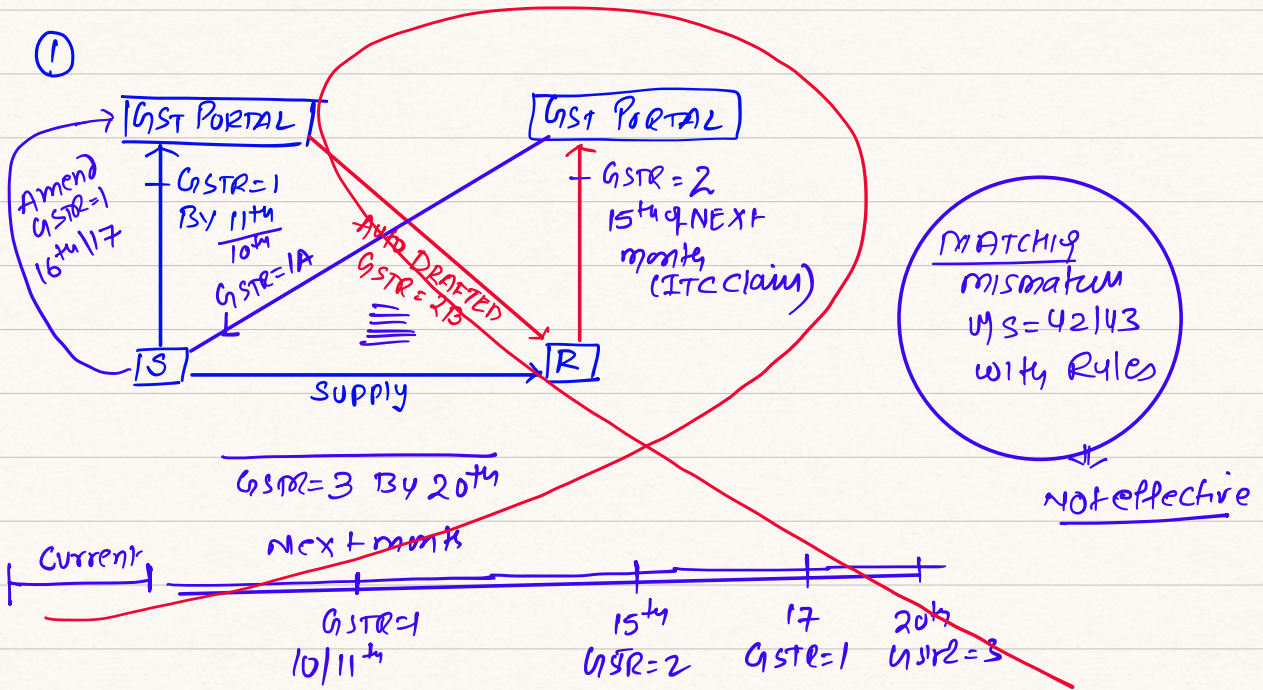 1
GST PORTAL
GST PORTAL
Amend
GSTR=1
16th/17
GSTR=1
BY 11th
10th
GSTR=1A
AUTO DRAFTED
GSTR=2B
GSTR=2
15th of NEXT
month
(ITC Claim)
S
R
Supply
MATCHIg
mismatch
u/s=42/43
with Rules
Not effective
GSTR=3 By 20th
Current
Next month
GSTR=1
10/11th
15th
GSTR=2
17
GSTR=1
20th
GSTR=3